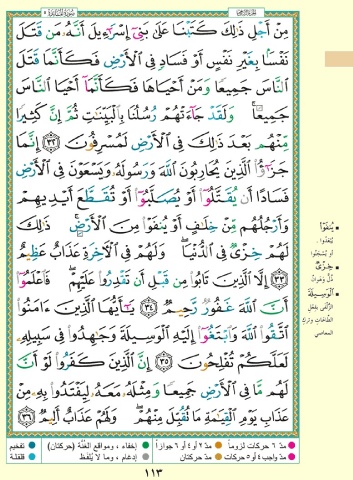 سُورَةُ المَائـِدَةِ ٥
الجزء السادس
مِنْ أَجْلِ ذَٰلِكَ كَتَبْنَا عَلَىٰ بَنِىٓ إِسْرَٰٓءِيلَ أَنَّهُۥ مَن قَتَلَ
نَفْسًۢا بِغَيْرِ نَفْسٍ أَوْ فَسَادٍ فِى ٱلْأَرْضِ فَكَأَنَّمَا قَتَلَ
ٱلنَّاسَ جَمِيعًا وَمَنْ أَحْيَاهَا فَكَأَنَّمَآ أَحْيَا ٱلنَّاسَ
جَمِيعًا ۚ وَلَقَدْ جَآءَتْهُمْ رُسُلُنَا بِٱلْبَيِّنَٰتِ ثُمَّ إِنَّ كَثِيرًا
مِّنْهُم بَعْدَ ذَٰلِكَ فِى ٱلْأَرْضِ لَمُسْرِفُونَ ٣٢ إِنَّمَا
جَزَٰٓؤُا۟ ٱلَّذِينَ يُحَارِبُونَ ٱللَّهَ وَرَسُولَهُۥ وَيَسْعَوْنَ فِى ٱلْأَرْضِ
فَسَادًا أَن يُقَتَّلُوٓا۟ أَوْ يُصَلَّبُوٓا۟ أَوْ تُقَطَّعَ أَيْدِيهِمْ
وَأَرْجُلُهُم مِّنْ خِلَٰفٍ أَوْ يُنفَوْا۟ مِنَ ٱلْأَرْضِ ۚ ذَٰلِكَ
لَهُمْ خِزْىٌ فِى ٱلدُّنْيَا ۖ وَلَهُمْ فِى ٱلْءَاخِرَةِ عَذَابٌ عَظِيمٌ
٣٣ إِلَّا ٱلَّذِينَ تَابُوا۟ مِن قَبْلِ أَن تَقْدِرُوا۟ عَلَيْهِمْ ۖ فَٱعْلَمُوٓا۟
أَنَّ ٱللَّهَ غَفُورٌ رَّحِيمٌ ٣٤ يَٰٓأَيُّهَا ٱلَّذِينَ ءَامَنُوا۟
ٱتَّقُوا۟ ٱللَّهَ وَٱبْتَغُوٓا۟ إِلَيْهِ ٱلْوَسِيلَةَ وَجَٰهِدُوا۟ فِى سَبِيلِهِۦ
لَعَلَّكُمْ تُفْلِحُونَ ٣٥ إِنَّ ٱلَّذِينَ كَفَرُوا۟ لَوْ أَنَّ
لَهُم مَّا فِى ٱلْأَرْضِ جَمِيعًا وَمِثْلَهُۥ مَعَهُۥ لِيَفْتَدُوا۟ بِهِۦ مِنْ
عَذَابِ يَوْمِ ٱلْقِيَٰمَةِ مَا تُقُبِّلَ مِنْهُمْ ۖ وَلَهُمْ عَذَابٌ أَلِيمٌ ٣٦
يُنفَوْا
يُبْعَدُوا..
أو يُسْجَنُوا
خِزْىٌ
ذُلٌّ وَهَوَانٌ
الْوَسِيلَةَ
الزُّلْفَى بِفِعْلِ
الطَّاعَاتِ وَتَرْكِ
المعاصي
مدّ ٦ حركات لزوماً مدّ ٢ أو ٤ أو ٦ جوازاً إخفاء، ومواقع الغُنَّة (حركتان) تفخيم
مدّ واجب ٤ أو ٥ حركات مدّ حركتان إدغام، وما لا يُلفَظ قلقلة
١١٣